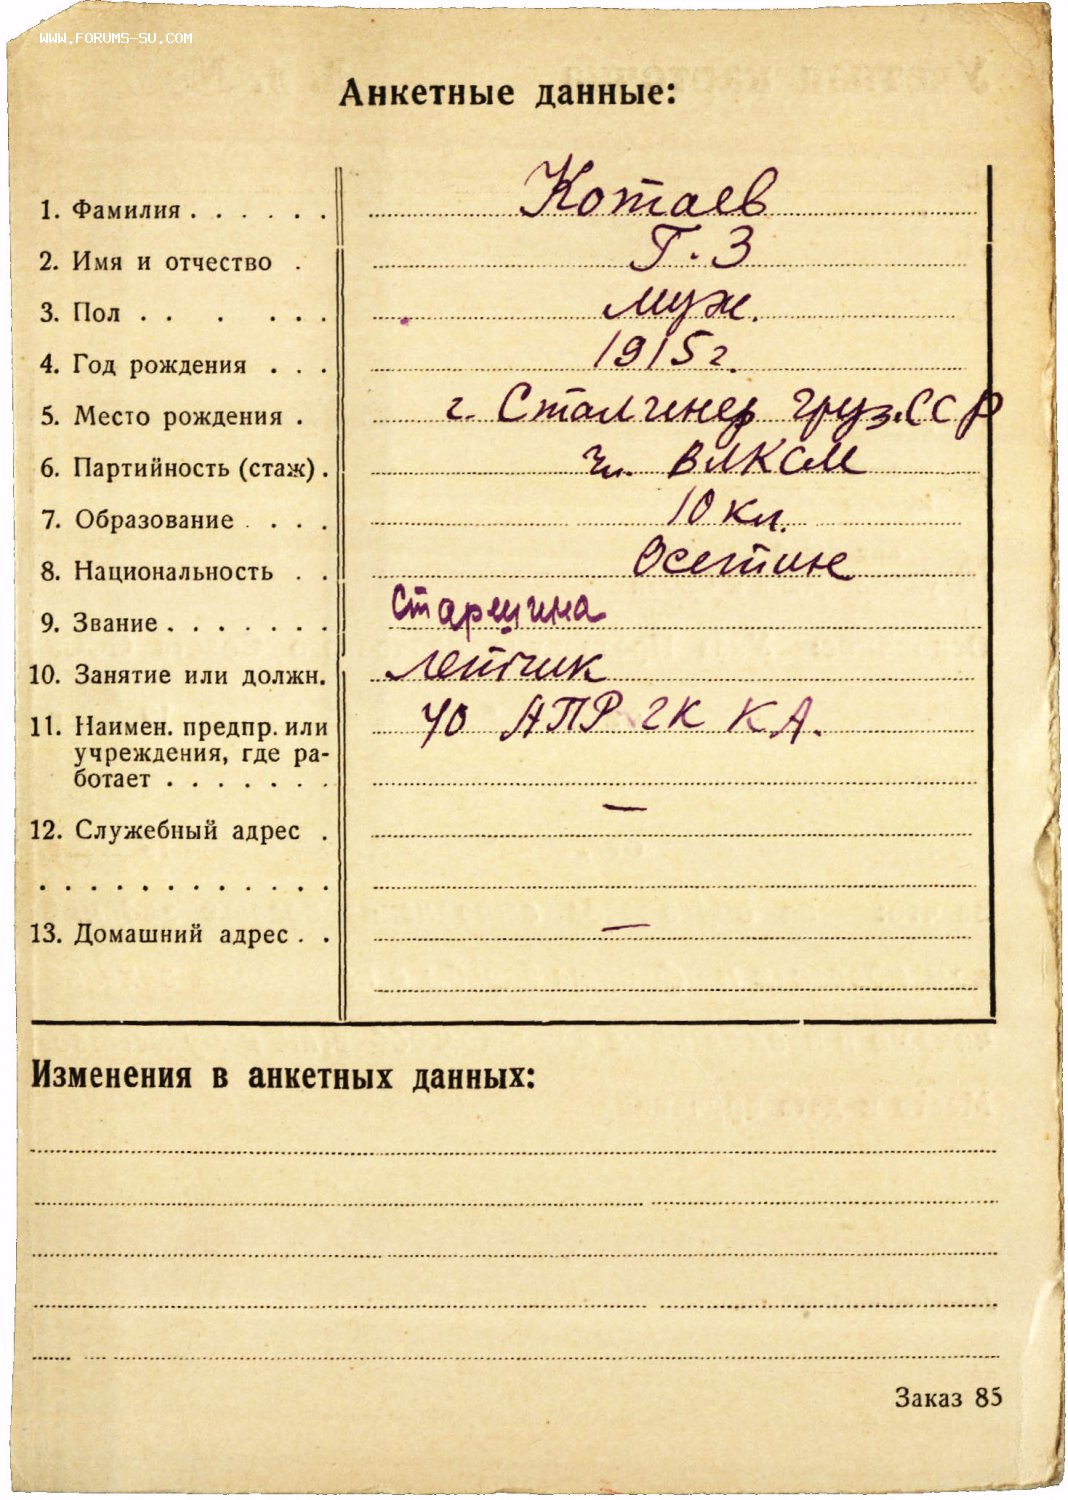 WWW.FORUMS-SU.COM
Анкетные данные:
1. Фамилия . . . . . . Котаев
2. Имя и отчество . Г. З
3. Пол . . . . . . муж.
4. Год рождения . . . 1915 г.
5. Место рождения . г. Сталинер Груз.ССР
6. Партийность (стаж) . чл. ВЛКСМ
7. Образование . . . . 10 кл.
8. Национальность . . Осетин
9. Звание . . . . . . . Старшина
10. Занятие или должн. летчик
11. Наимен. предпр. или 40 АПР ГК КА.
учреждения, где ра-
ботает . . . . . . .
12. Служебный адрес . —
. . . . . . . . . . . .
13. Домашний адрес . . —
Изменения в анкетных данных:
Заказ 85